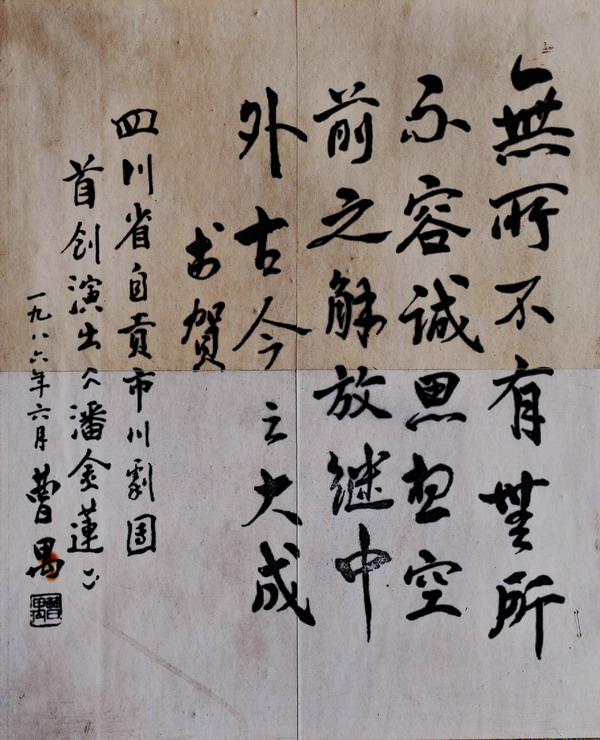 無所不有無所
不容誠思想空
前之解放继中
外古今之大成
书賀
四川省自贡市川劇团
首创演出《潘金蓮》
一九八六年六月 曹禺
曹禺